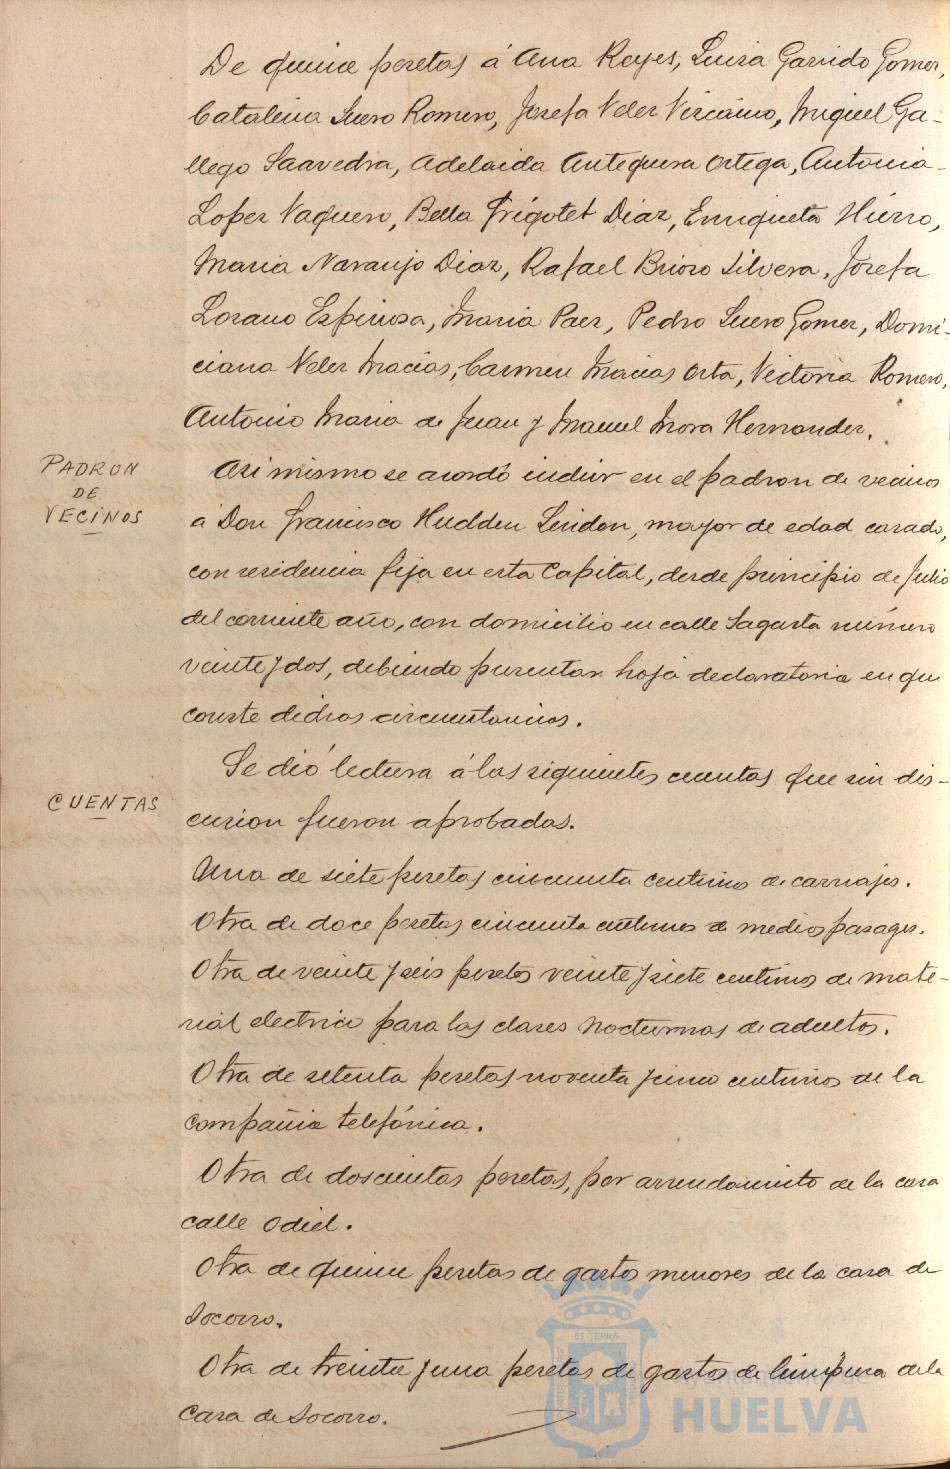 De quince pesetas á Ana Reyes, Luisa Garrido Gomez,
Catalina Suero Romero, Josefa Velez Viscaino, Miguel Ga-
llego Saavedra, Adelaida Antequera Ortega, Antonia
Lopez Vaquero, Bella Frigotet Diaz, Enriqueta Hierro,
Maria Naranjo Diaz, Rafael Brioso Silvera, Josefa
Lozano Espinosa, Maria Paez, Pedro Suero Gomez, Domi-
ciana Velez Macias, Carmen Macias Orta, Victoria Romero,
Antonio Maria de Juan y Manuel Mora Hernandez.
PADRON
DE
VECINOS
Asi mismo se acordó incluir en el padron de vecinos
á Don Francisco Hudden Lendon, mayor de edad casado,
con residencia fija en esta Capital, desde principio de Julio
del corriente año, con domicilio en calle Sagasta número
veinte y dos, debiendo presentar hoja declaratoria en que
conste dichas circunstancias.
CUENTAS
Se dió lectura á las siguientes cuentas que sin dis-
cusion fueron aprobadas.
Una de siete pesetas cincuenta centimos de carruajes.
Otra de doce pesetas cincuenta centimos de medios pasages.
Otra de veinte y seis pesetas veinte y siete centimos de mate-
rial electrico para las clases nocturnas de adultos.
Otra de setenta pesetas noventa y cinco centimos de la
compañia telefónica.
Otra de doscientas pesetas, por arrendamiento de la casa
calle Odiel.
Otra de quince pesetas de gastos menores de la casa de
Socorro.
Otra de treinta y una pesetas de gastos de limpieza de la
Casa de Socorro.
Ayuntamiento de
HUELVA